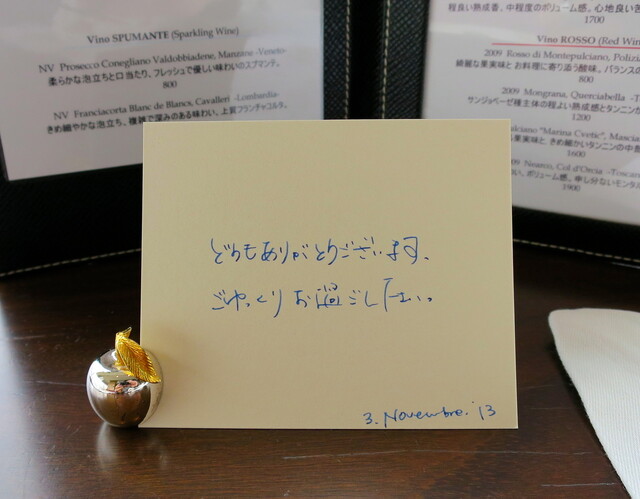 Vino SPUMANTE (Sparkling Wine)
NV Prosecco Conegliano Valdobbiadene, Manzane -Veneto-
柔らかな泡立ちと口当たり、フレッシュで優しい味わいのスプマンテ。
800
NV Franciacorta Blanc de Blancs, Cavalleri -Lombardia-
きめ細やかな泡立ち、複雑で深みのある味わい、上質フランチャコルタ。
程良い熟成香、中程度のボリューム感。心地良い苦
1700
Vino ROSSO (Red Win
2009 Rosso di Montepulciano, Poliz
綺麗な果実味とお料理に寄り添う酸味。バランスの
800
2009 Mongrana, Querciabella -T
サンジョベーゼ種主体の程よい熟成感とタンニンが
1200
ulciano "Marina Cvetic", Mascia
果実味と きめ細かいタンニンの中
1600
009 Nearco, Col d'Orcia -Toscan
い、ボリューム感。申し分ないモンタル
1900
どうもありがとうございます。
ごゆっくりお過ごし下さい。
3. Novembre. '13